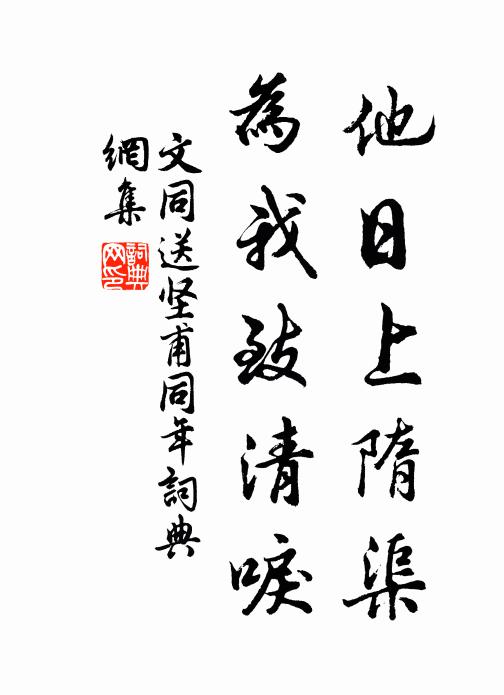 他日上隋渠
為我致清唳
文同送坚甫同年詞典
網集
詞典網印